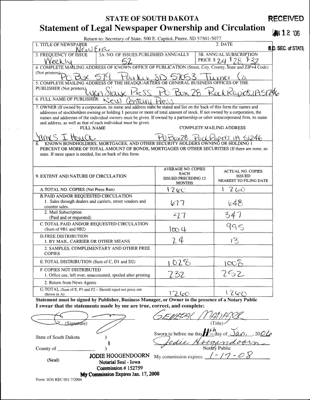 STATE OF SOUTH DAKOTA
RECEIVED
Statement of Legal Newspaper Ownership and Circulation
JAN 12 '06
Return to: Secretary of State, 500 E. Capitol, Pierre, SD 57501-5077
S.D. SEC. of STATE
1. TITLE OF NEWSPAPER
New Era
2. DATE
3. FREQUENCY OF ISSUE
Weekly
3A. NO. OF ISSUES PUBLISHED ANNUALLY
52
3B. ANNUAL SUBSCRIPTION
PRICE $
4. COMPLETE MAILING ADDRESS OF KNOWN OFFICE OF PUBLICATION (Street, City, County, State and ZIP+4 Code)
(Not printers)
Po Box 579 Parker SD 57053 Turner Co
5. COMPLETE MAILING ADDRESS OF THE HEADQUARTERS OR GENERAL BUSINESS OFFICES OF THE
PUBLISHER (Not printers)
Po Box 28
6. FULL NAME OF PUBLISHER:
New Century Press
7. OWNER (If owned by a corporation, its name and address must be stated and list on the back of this form the names and
addresses of stockholders owning or holding 1 percent or more of total amount of stock. If not owned by a corporation, the
names and addresses of the individual owners must be given. If owned by a partnership or other unincorporated firm, its name
and address, as well as that of each individual must be given.
FULL NAME
COMPLETE MAILING ADDRESS
8. KNOWN BONDHOLDERS, MORTGAGEES, AND OTHER SECURITY HOLDERS OWNING OR HOLDING 1
PERCENT OR MORE OF TOTAL AMOUNT OF BONDS, MORTGAGES OR OTHER SECURITIES (If there are none, so
state. If more space is needed, list on back of this form.
9. EXTENT AND NATURE OF CIRCULATION
AVERAGE NO. COPIES
EACH
ISSUE DURING PRECEDING 12
MONTHS
ACTUAL NO. COPIES
ISSUED
NEAREST TO FILING DATE
A. TOTAL NO. COPIES (Net Press Run)
1260
1260
B. PAID AND/OR REQUESTED CIRCULATION
1. Sales through dealers and carriers, street vendors and
counter sales.
677
648
2. Mail Subscription
(Paid and or requested)
327
347
C. TOTAL PAID AND/OR REQUESTED CIRCULATION
(Sum of 9B1 and 9B2)
1004
995
D. FREE DISTRIBUTION
1. BY MAIL, CARRIER OR OTHER MEANS
24
13
2. SAMPLES, COMPLIMENTARY AND OTHER FREE
COPIES
E. TOTAL DISTRIBUTION (Sum of C, D1 and D2)
1028
1008
F. COPIES NOT DISTRIBUTED
1. Office use, left over, unaccounted, spoiled after printing
232
252
2. Return from News Agents
G. TOTAL (Sum of E, F1 and F2 - Should equal net press run
shown in A)
1260
1260
Statement must be signed by Publisher, Business Manager, or Owner in the presence of a Notary Public
I swear that the statements made by me are true, correct, and complete:
(Signature)
GENERAL MANAGER
(Title)
State of South Dakota )
County of )
Sworn to before me this 11th day of Jan. 2006
Jodie Hoogendoorn
Notary Public
(Seal)
JODIE HOOGENDOORN
Notarial Seal - Iowa
Commission # 152759
My Commission Expires Jan. 17, 2008
My commission expires: 1-17-08